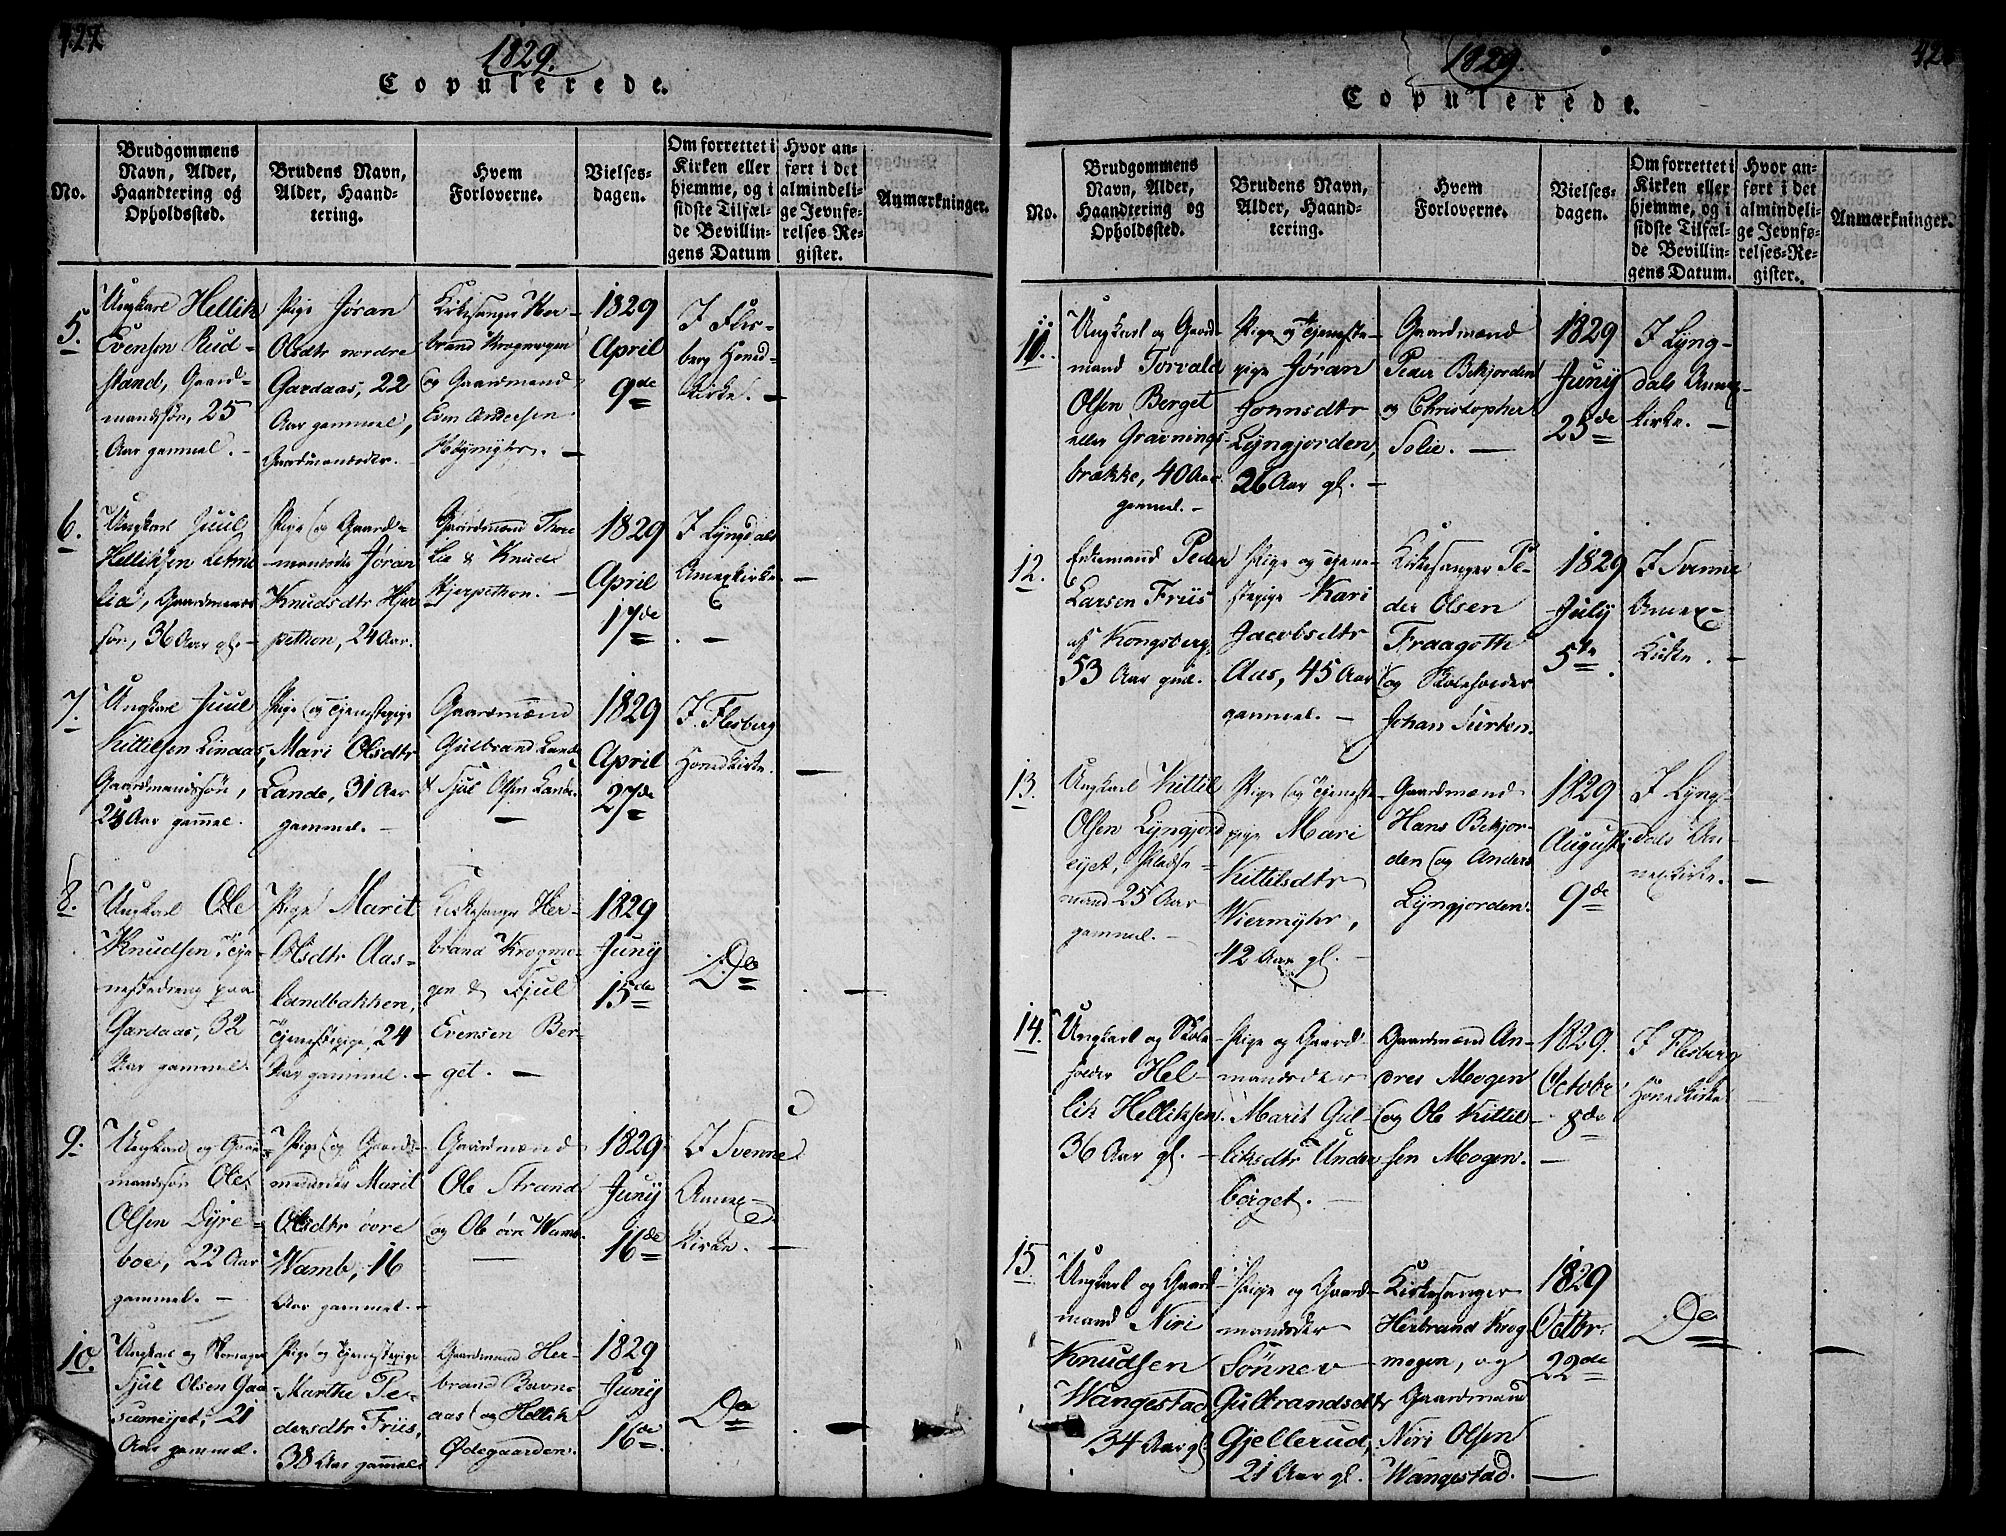 427
1829.
Copulerede.
No.
Brudgommens Navn, Alder, Haandtering og Opholdssted.
Brudens Navn, Alder, Haandtering.
Hvem Forloverne.
Vielsesdagen.
Om forrettet i Kirken eller hjemme, og i sidste Tilfælde Bevillingens Datum
Hvor anført i det almindelige Jevnførelses-Register.
Anmærkninger.
5.
Ungkarl Hellik
Evensen Rud-
stand, Gaard-
mandssøn, 25
Aar gammel. -
Pige Jøran
Olsdtr nordre
Gardaas, 22
Aar gammel,
Gaardmandsdr. -
Kirkesanger Her-
brand Krogmogen
og Gaardmand
Even Andersen
Høymyhr. -
1829
April
9de
I Fles-
berg Hoved-
Kirke. -
6.
Ungkarl Juul
Helliksen
lia, Gaardmands
søn, 36 Aar gl. -
Pige og Gaard-
mandsdr Jøran
Knudsdtr Hjer
pethon, 24 Aar.
Gaardmænd Thore
Lie & Knud
Hjerpethon. -
1829
April
17de
I Lyngdals
Annexkirke
. -
7.
Ungkarl Juul
Kittilsen Lindaas,
Gaardmandssøn,
28 Aar gammel.
Pige og Tjenestepige
Mari Olsdtr
Lande, 31 Aar
gammel. -
Gaardmænd
Gulbrand Lande
& Tjul Olsen Lande.
-
1829
April
27de
I Flesberg
Hovedkirke.
-
8.
Ungkarl Ole
Knudsen Tje-
nestedreng paa
Gardaas, 32
Aar gammel.
Pige Marit
Olsdtr Aas-
landbakken,
Tjenestepige, 24
Aar gammel. -
Kirkesanger Her-
brand Krogmo-
gen & Tjul
Evensen Ber-
get. -
1829
Juny
15de
Do
-
9.
Ungkarl og Gaard-
mandssøn Ole
Olsen Dyre-
boe, 22 Aar
gammel. -
Pige og Gaard-
mandsdr Marit
Olsdtr övre
Wamb, 16
Aar gammel. -
Gaardmænd
Ole Strand
og Ole övre Wamb.
1829
Juny
16de
I Svenne
Annex-
Kirke. -
10.
Ungkarl og
Tjul Olsen Gaa
sumeyet, 21
Aar gammel.
Pige og Tjenestepige
Marthe Pe-
dersdtr Friis,
38 Aar gammel
Gaardmænd Her-
brand Bavn-
aas og Hellik
Ødegaarden.
1829
Juny
16de
Do
-
1829.
Copulerede.
No.
Brudgommens Navn, Alder, Haandtering og Opholdssted.
Brudens Navn, Alder, Haandtering.
Hvem Forloverne.
Vielsesdagen.
Om forrettet i Kirken eller hjemme, og i sidste Tilfælde Bevillingens Datum.
Hvor anført i det almindelige Jevnførelses-Register.
Anmærkninger.
11.
Ungkarl og Gaard-
mand Torvald
Olsen Berget
eller Gravnings-
brække, 40 Aar
gammel. -
Pige og Tjeneste-
pige Jøran
Jonnsdtr
Lyngjorden,
26 Aar gl. -
Gaardmænd
Peder Bekjorden
og Christopher
Solie. -
1829
Juny
25de
I Lyng-
dals Annex-
kirke. -
12.
Enkemand Peder
Larsen Friis
af Kongsberg,
53 Aar gml.
Pige og Tjene-
stepige Kari
Jacobsdtr
Aas, 45 Aar
gammel. -
Kirkesanger Pe-
der Olsen
Fraagoth
og Skoleholder
Johan Turten.
1829
July
5te
I Svenne
Annex-
Kirke. -
13.
Ungkarl Kittil
Olsen Lyngjord
eyet, Pladse-
mand 25 Aar
gammel. -
Pige og Tjeneste-
pige Mari
Kittilsdtr
Wiermyhr,
42 Aar gl. -
Gaardmænd
Hans Bekjor-
den og Anders
Lyngjorden.
1829
August
9de
I Lyngs
dals An-
nexkirke.
-
14.
Ungkarl og Skole-
holder Hel-
lik Helliksen
36 Aar gl. -
Pige og Gaard-
mandsdr
Marit Gul-
liksdtr Under-
berget. -
Gaardmænd An-
dres Mogen
og Ole Kittil-
sen Mogen.
1829.
Octobr
8de
-
I Flesberg
Hovedkirke.
15.
Ungkarl og Gaard-
mand Niri
Knudsen
Wangestad
34 Aar gl.
Pige og Gaard-
mandsdr
Sønnev
Gulbrandsdtr
Gjellerud,
21 Aar gl.
Kirkesanger
Herbrand Krog-
mogen, og
Gaardmand
Niri Olsen
Wangestad.
1829
Octbr.
22de
-
Do
-